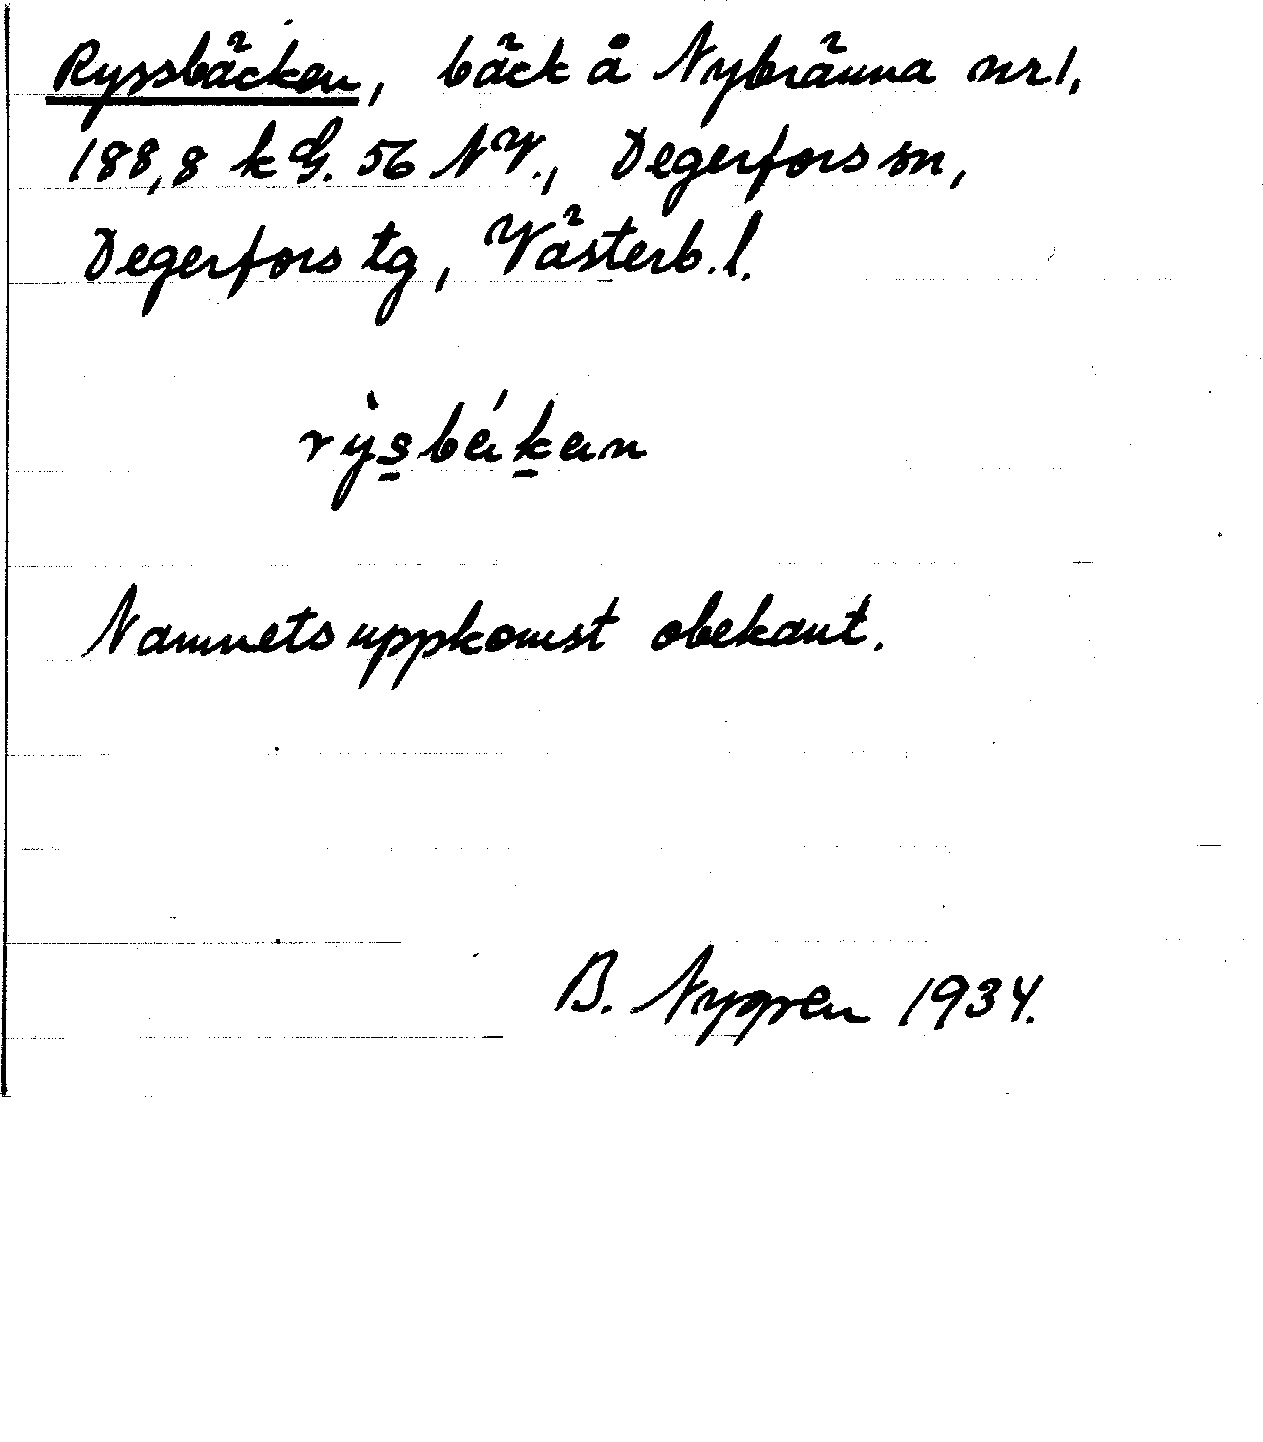 Ryssbäcken, bäck å Nybränna nr 1,
188,8 k G. 56 NV., Degerfors sn,
Degerfors tg, Västerb. l.
Namnets uppkomst obekant.
B. Nygren 1934.